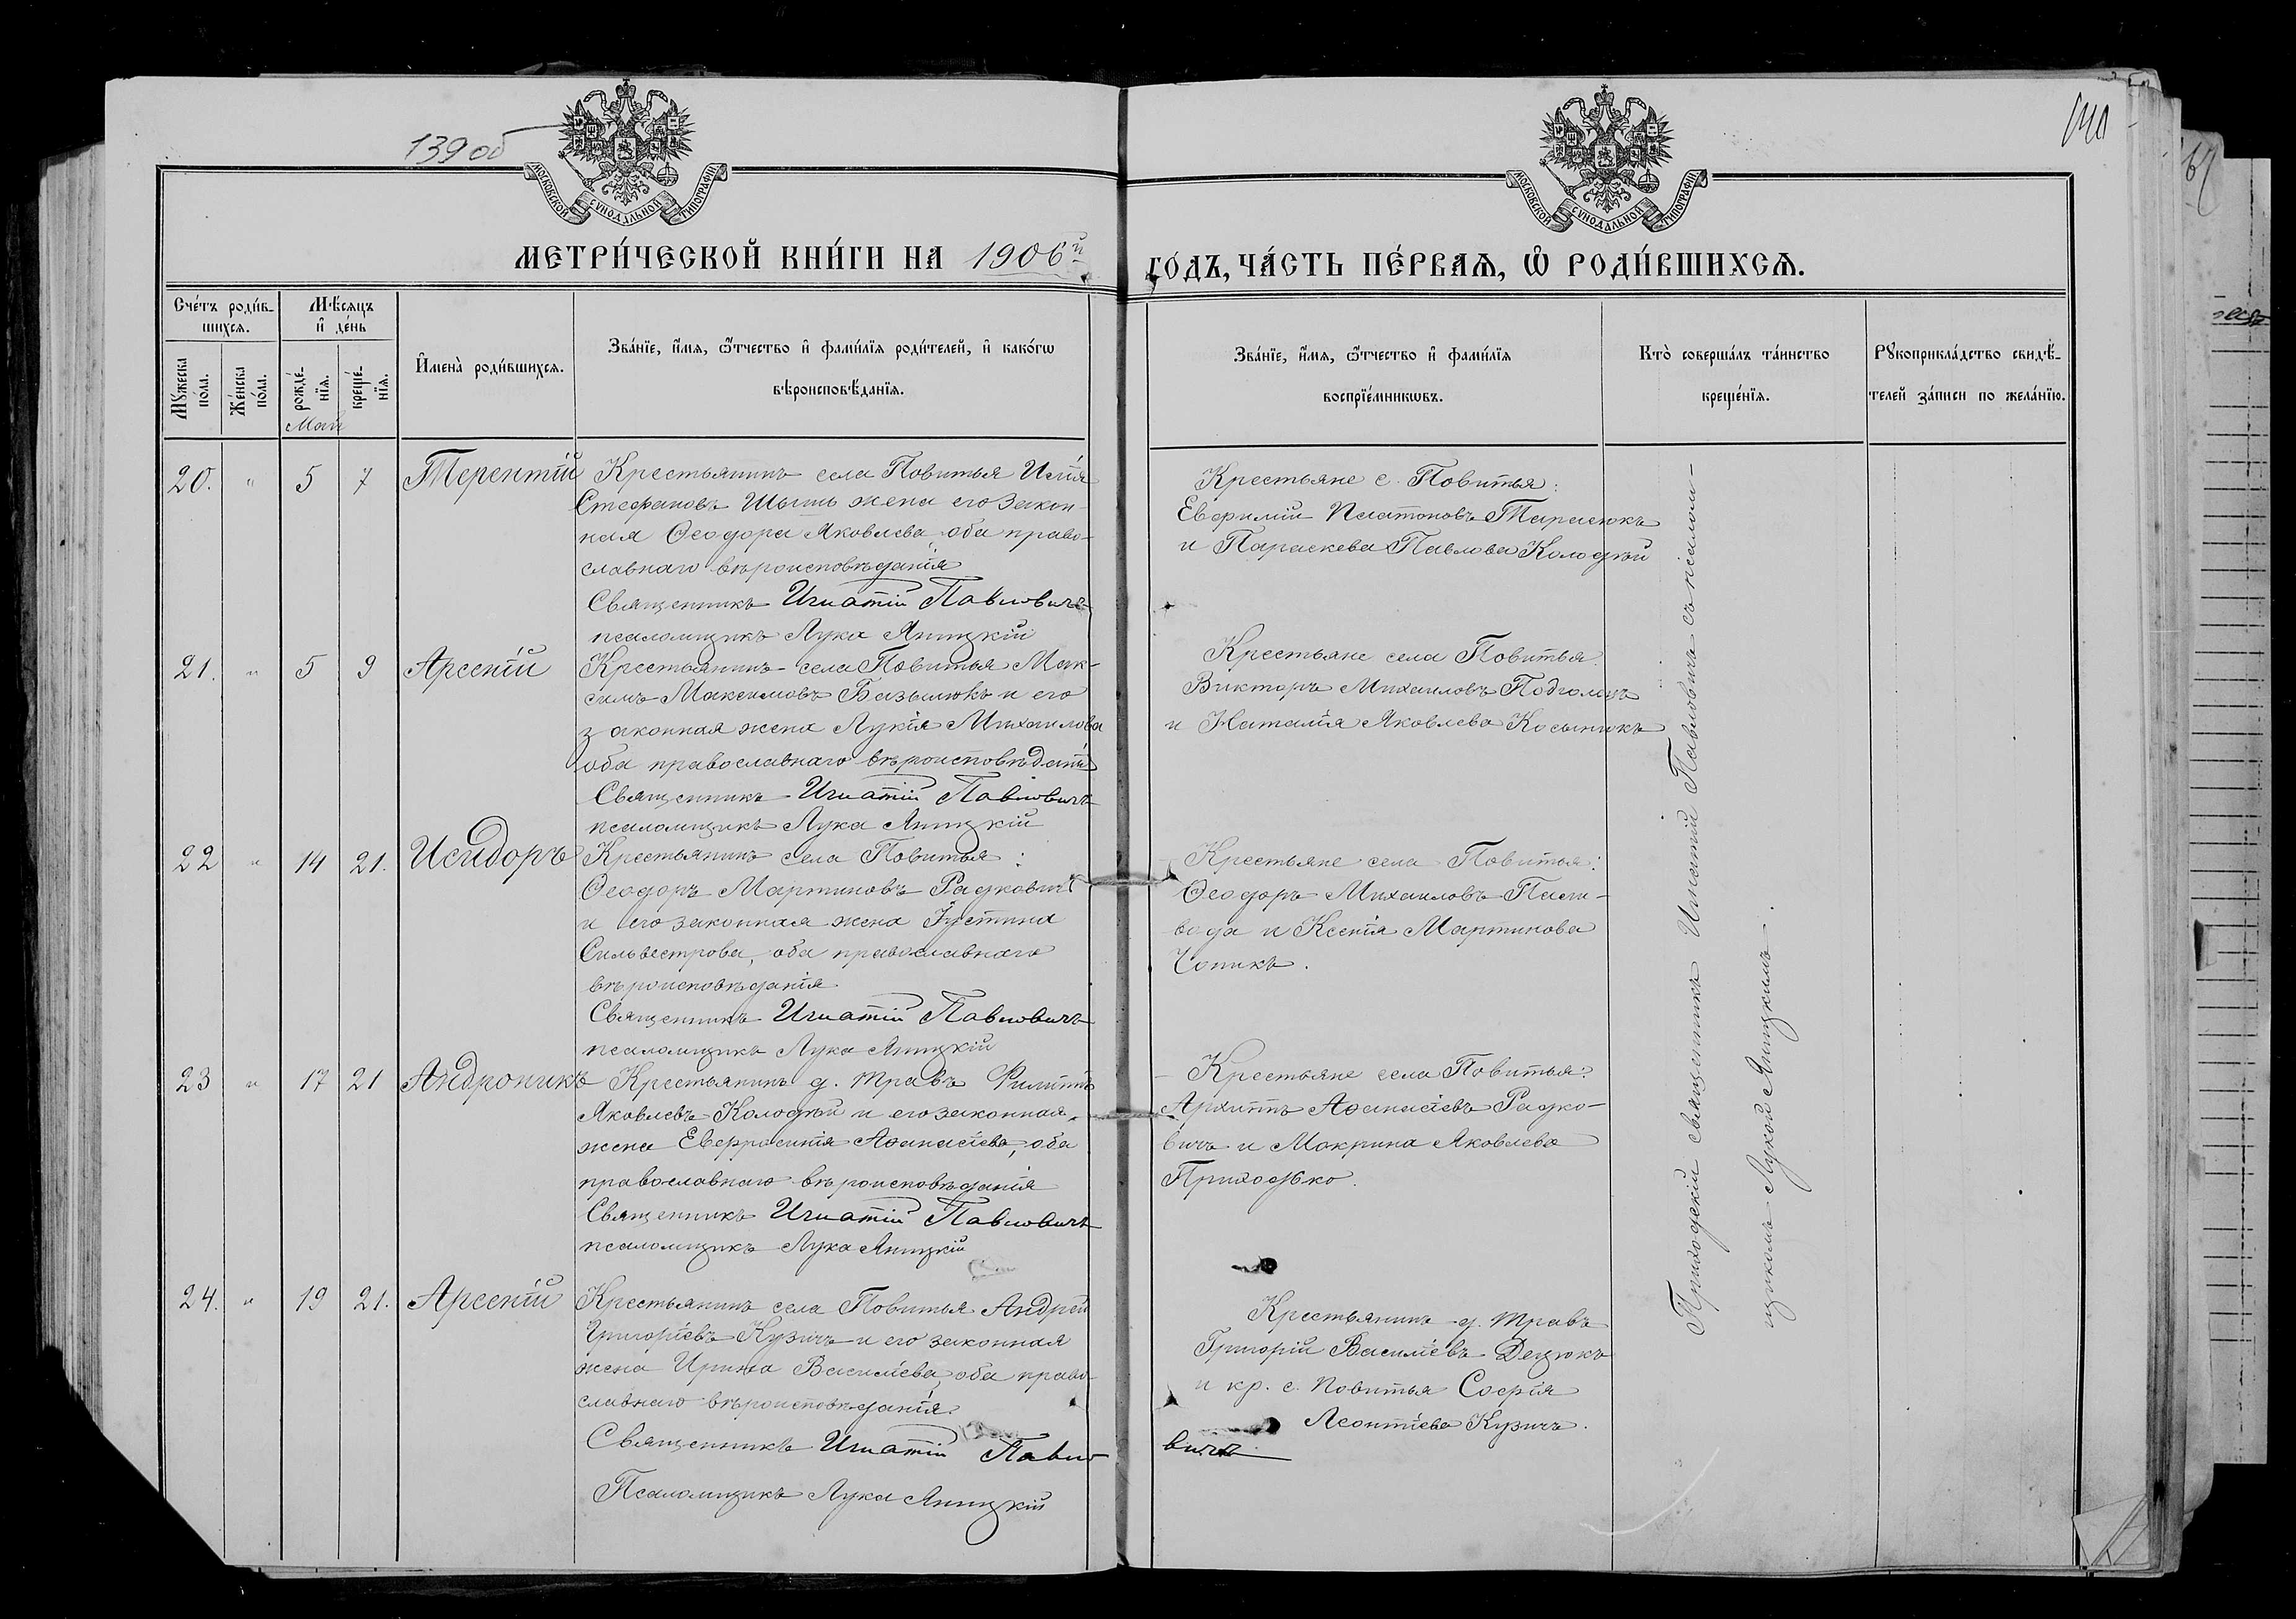 139 об
140
67
МОСКОВСКОЙ СУНОДАЛЬНОЙ ТИПОГРАФІИ
МОСКОВСКОЙ СУНОДАЛЬНОЙ ТИПОГРАФІИ
МЕТРИ́ЧЕСКОЙ КНИ́ГИ НА 1906й
ГО́ДЪ, ЧА́СТЬ ПЕ́РВАѦ, Ѡ҆ РОДИ́ВШИХСѦ.
Сче́тъ роди́в-
шихсѧ.
Мꙋ́жеска по́ла.
Же́нска по́ла.
Мѣ́сѧцъ
и҆ де́нь
рожде́-
нїѧ.
креще́-
нїѧ.
Май
И҆мена̀ роди́вшихсѧ.
Зва́нїе, и҆́мѧ, ѻ҆́тчество и҆ фами́лїѧ роди́телей, и҆ како́гѡ
вѣроисповѣ́данїѧ.
Зва́нїе, и҆́мѧ, ѻ҆́тчество и҆ фами́лїѧ
воспрїе́мникѡвъ.
Кто̀ соверша́лъ та́инство
креще́нїѧ.
Рꙋкоприкла́дство свидѣ́-
телей за́писи по жела́нїю.
20. " 5 7 Терентій
Крестьянинъ села Повитья Илія
Стефановъ Шышъ жена его закон-
ная Ѳеодора Яковлева, оба право-
славнаго вѣроисповѣданія
Священникъ Игнатій Павловичъ
псаломщикъ Лука Яницкій
Крестьяне с. Повитья:
Евфимій Платоновъ Тарасюкъ
и Параскева Павлова Колодѣй
21. " 5 9 Арсеній
Крестьянинъ села Повитья Мак-
симъ Максимовъ Базылюкъ и его
законная жена Лукія Михаилова
оба православнаго вѣроисповѣданія
Священникъ Игнатій Павловичъ
псаломщикъ Лука Яницкій
Крестьяне села Повитья
Викторъ Михаиловъ
и Наталія Яковлева
22 " 14 21. Исидоръ
Крестьянинъ села Повитья:
Ѳеодоръ Мартиновъ Радковичъ
и его законная жена Іустина
Сильвестрова, оба православнаго
вѣроисповѣданія
Священникъ Игнатій Павловичъ
псаломщикъ Лука Яницкій
Крестьяне села Повитья:
Ѳеодоръ Михаиловъ Пали-
вода и Ксенія Мартинова
23 " 17 21 Андроникъ
Крестьянинъ д. Травъ Филиппъ
Яковлевъ Колодѣй и его законная
жена Евфросинія Аѳанасіева, оба
православнаго вѣроисповѣданія
Священникъ Игнатій Павловичъ
псаломщикъ Лука Яницкій
Крестьяне села Повитья:
Архиппъ Аѳанасіевъ Радко-
вичъ и Макрина Яковлева
Приходько.
24. " 19 21. Арсеній
Крестьянинъ села Повитья Андрей
Григоріевъ Кузичъ и его законная
жена Ирина Василіева, оба право-
славнаго вѣроисповѣданія.
Священникъ Игнатій Павло
вичъ
Псаломщикъ Лука Яницкій
Крестьянинъ д. Травъ
Григорій Василіевъ Децюкъ
и кр. с. Повитья Софія
Леонтіева Кузичъ.
Приходскій священникъ Игнатій Павловичъ съ псалом-
щикомъ Лукой Яницкимъ.